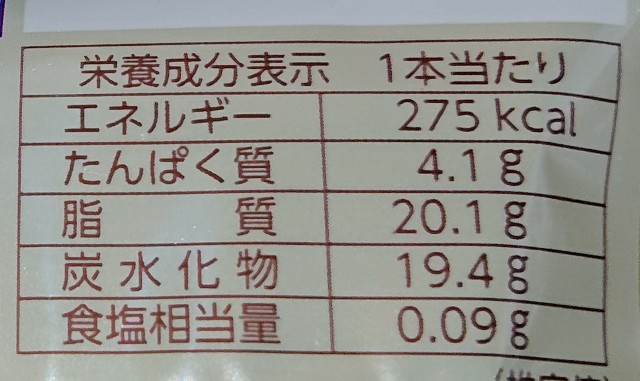 栄養成分表示 1本当たり
エネルギー 275 kcal
たんぱく質 4.1 g
脂質 20.1 g
炭水化物 19.4 g
食塩相当量 0.09 g